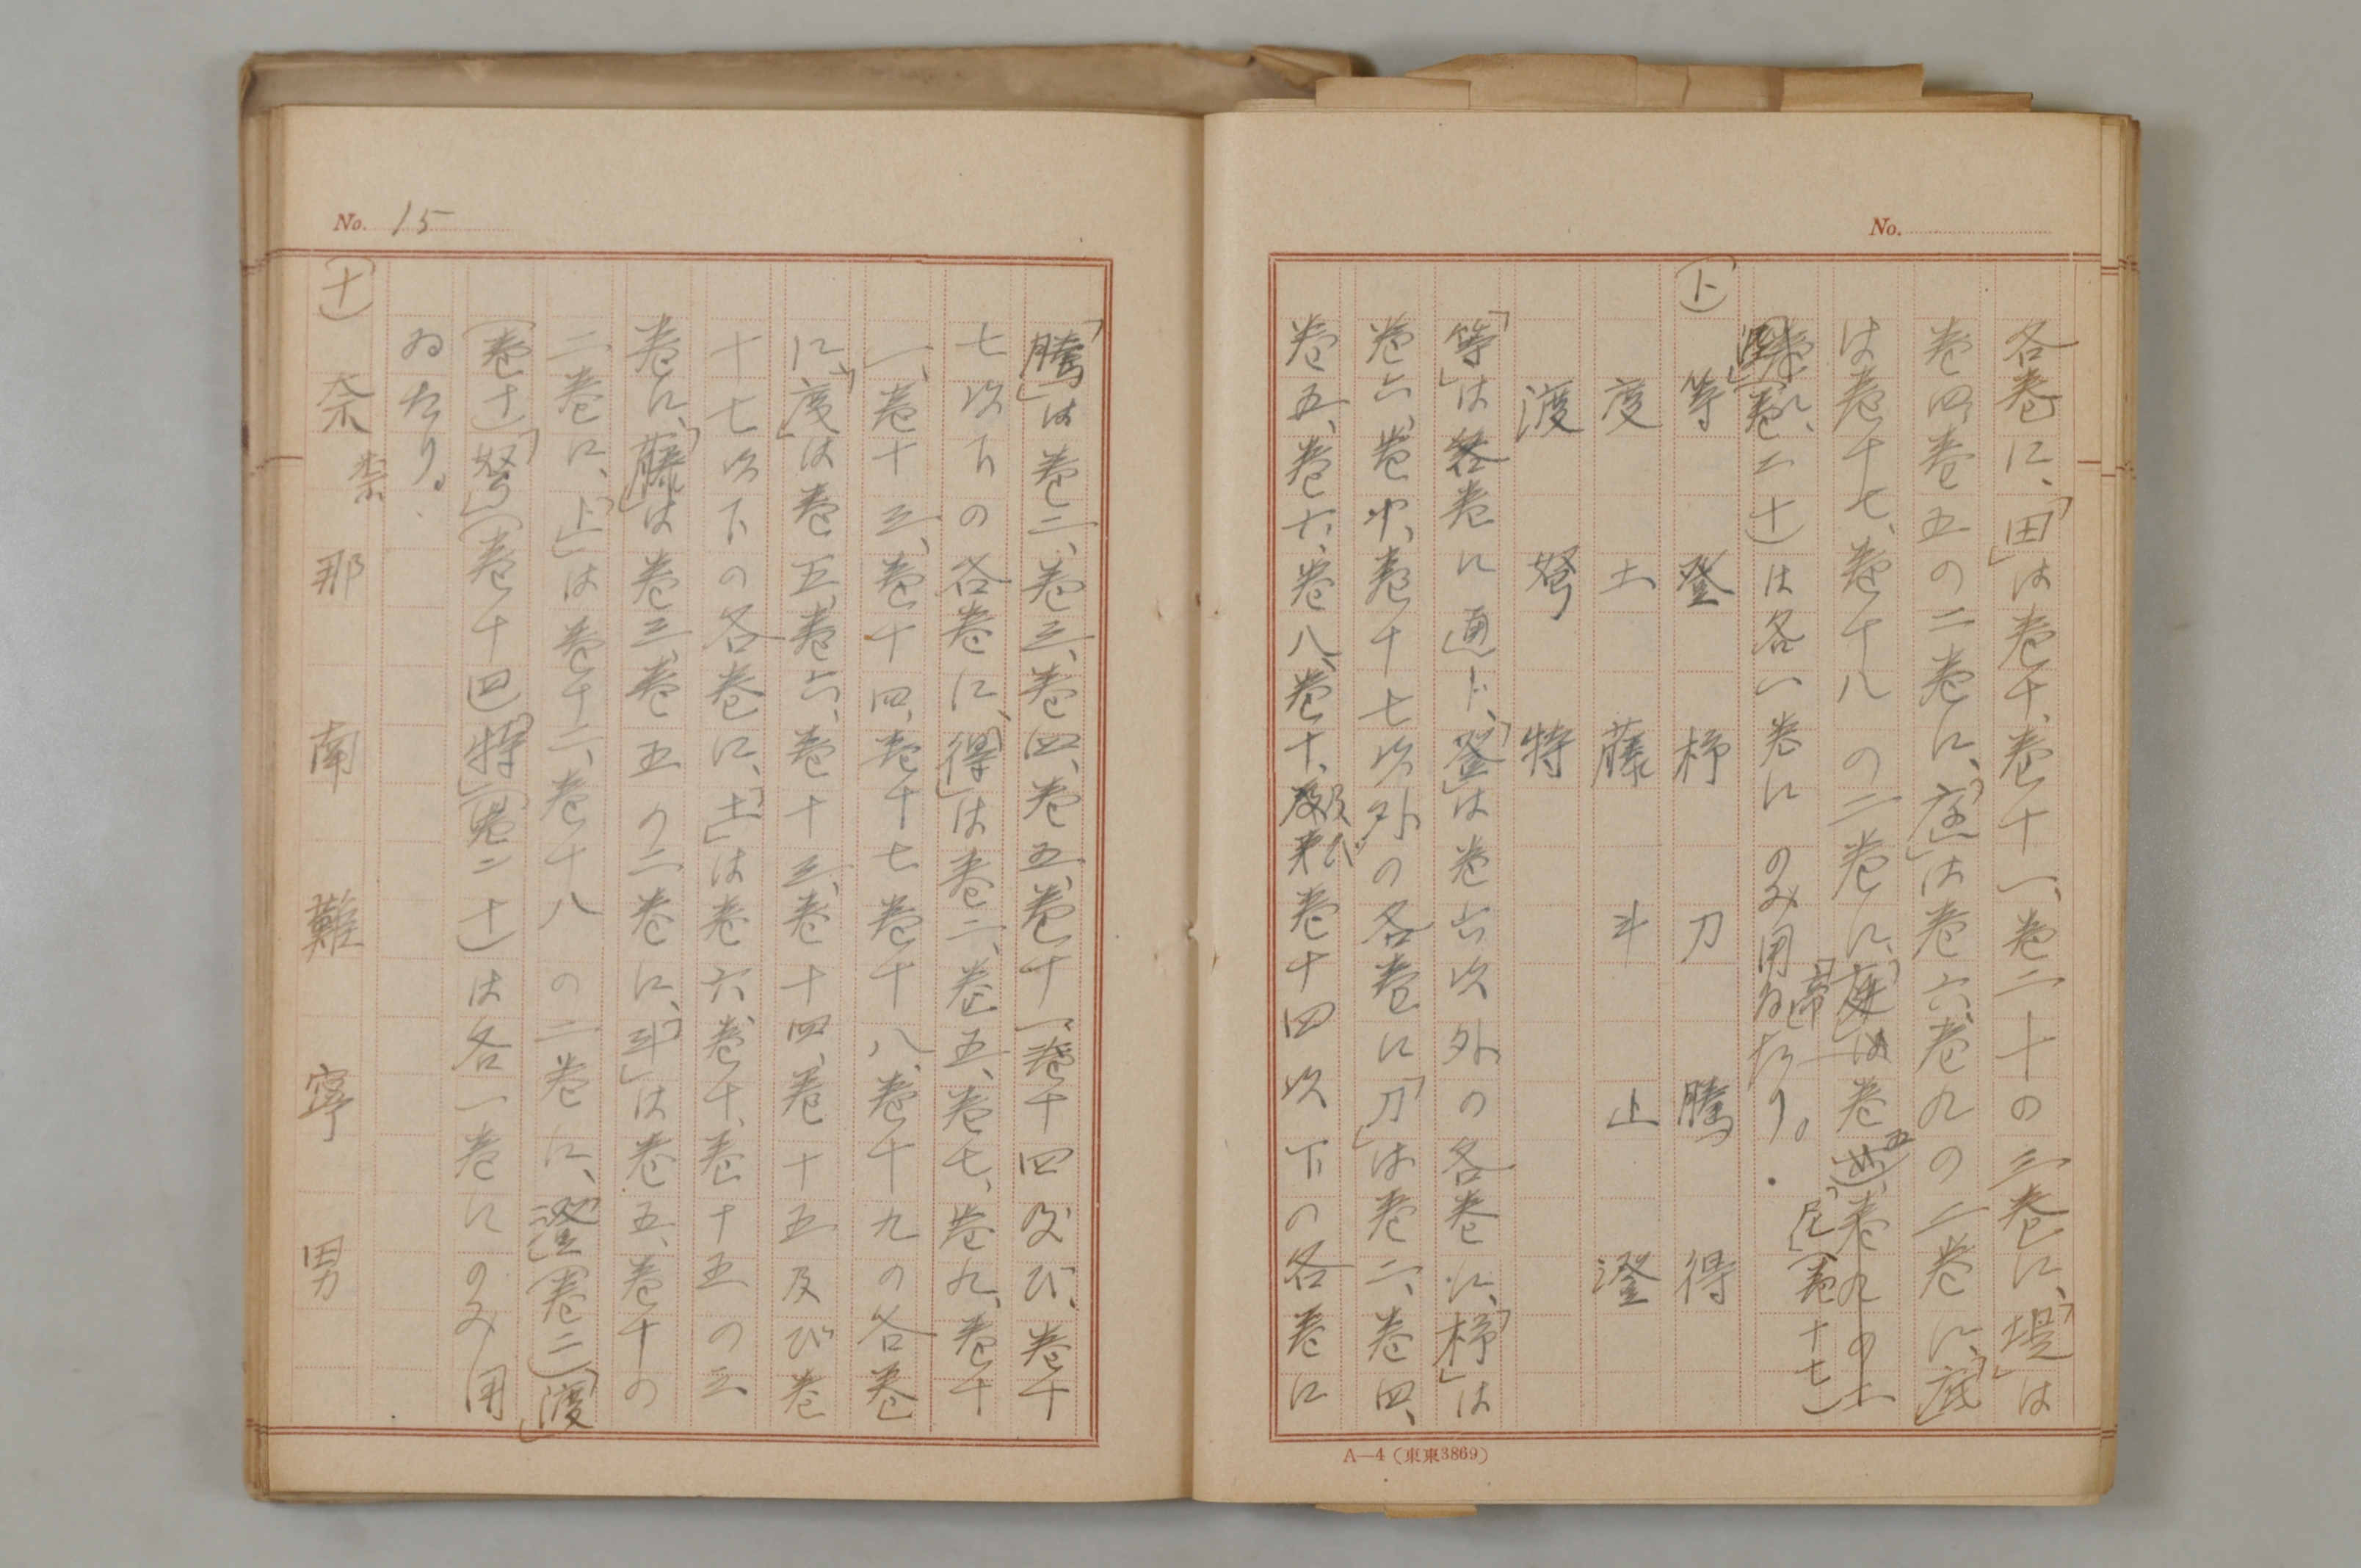 No.
各巻に、「田」は巻十、巻十一、巻二十の三巻に、「堤」は
巻四、巻五の二巻に、「庭」は巻六、巻九の二巻に、「底」
は巻十七、巻十八の二巻に、「帝」は巻五
「尼」(巻十七)
(巻二十)は各一巻にのみ用ゐたり。
(ト) 等 登 杼 刀 騰 得
度 土 藤 斗 止 澄
渡 弩 特
「等」は各巻に通ト、「登」は巻六以外の各巻に、「杼」は
巻六、巻十七以外の各巻に「刀」は巻二、巻四、
巻五、巻六、巻八、巻十、及び巻十四以下の各巻に
A—4 (東東3869)
No. 15
「騰」は巻二、巻三、巻四、巻五、巻十一、巻十四及び、巻十
七以下の各巻に、「得」は巻二、巻五、巻七、巻九、巻十
一、巻十三、巻十四、巻十七巻十八、巻十九の各巻
に、「度」は巻五、巻六、巻十三、巻十四、巻十五及び巻
十七以下の各巻に、「土」は巻六、巻十、巻十五の三
巻に、「藤」は巻三、巻五の二巻に、「斗」は巻五、巻十の
二巻に、「止」は巻十二、巻十八の二巻に、「澄」(巻二)「渡」
(巻十)「弩」(巻十四)「特」(巻二十)は各一巻にのみ用
ゐたり。
(ナ) 奈 那 南 難 寧 男
柰